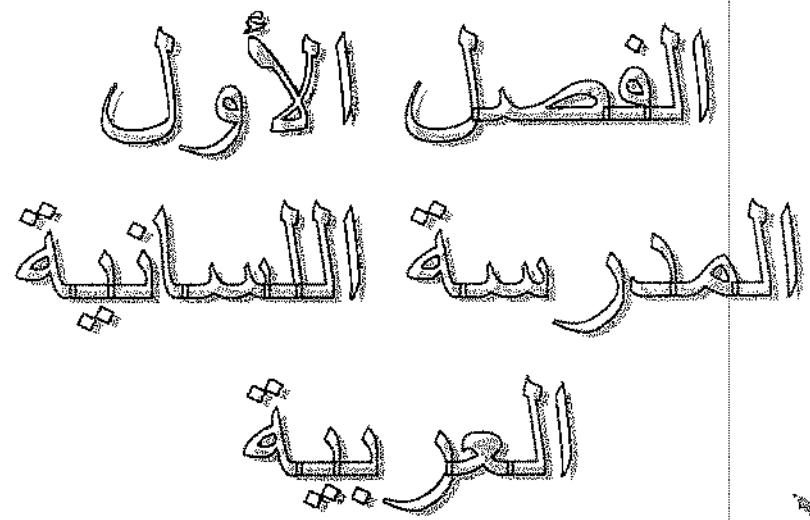 الفصل الأول
المدرسة اللسانية
العربية